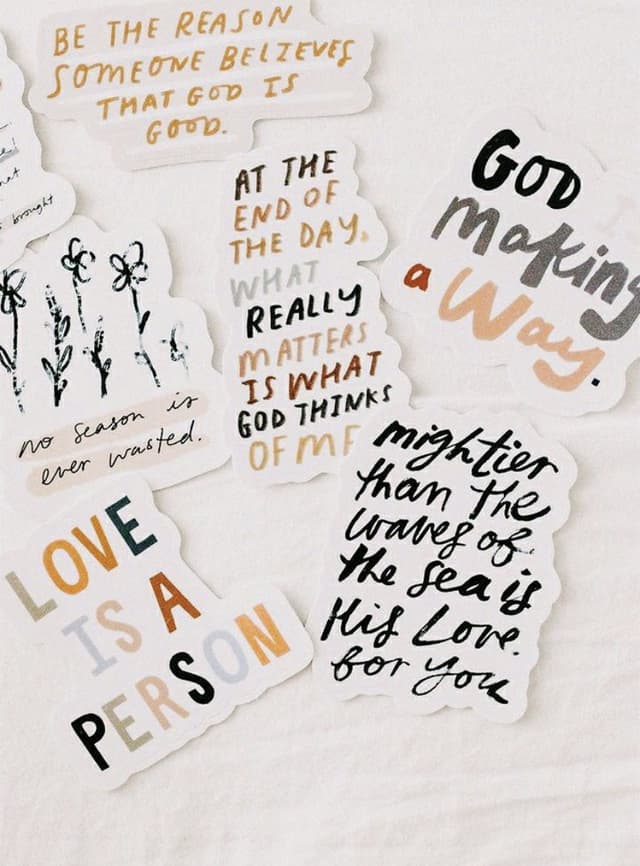 BE THE REASON
SOMEONE BELIEVES
THAT GOD IS
GOOD.
brought
AT THE
END OF
THE DAY,
WHAT
REALLY
MATTERS
IS WHAT
GOD THINKS
OF ME
GOD
making
a Way.
no season is
ever wasted.
mightier
than the
waves of
the sea is
His Love
for you
LOVE
IS A
PERSON